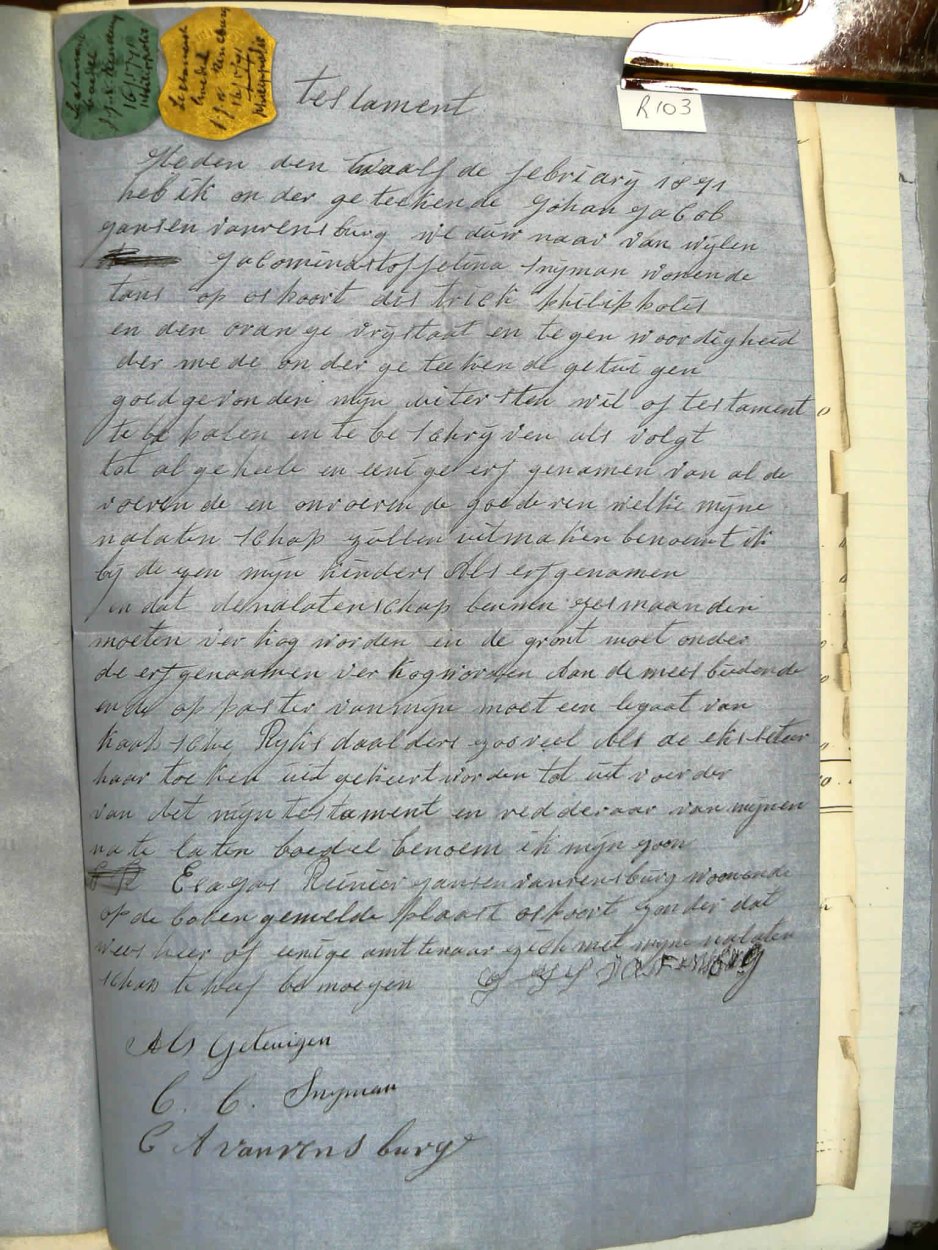 R103
testament
Heden den twaalf de febriarÿ 1871
heb ik on der ge teekende Johan Jacob
Jansen vanrensburg we duw naar van wÿlen
Jacomina stoffelina Snÿman wonende
tans op oskoort dis trick philippolis
en den oran ge vrÿstaat en te gen woor digheid
der me de on der ge teeken de getui gen
goed gevonden mÿn uiter sten wil of testament
te be palen en te be schrÿ ven als volgt
tot al ge heele en eeni ge erf genamen van al de
roeren de en onroeren de goede ren welke mÿne
nalaten schap zullen uitmaken benoemt ik
bÿ de zen mÿn kinders Als erfgenamen
in dat denalatenschap bennen zesmaanden
moeten ver kog worden en de gront moet onder
de erfgenaamen ver kogworden Aan de mees biedende
en de op paster vanmÿn moet een legaat van
kaap sche Rÿks daalders zooveel Als de eksketeur
haar toe ken uit gekeert worden tot uit voerder
van det mÿn testament en redderaar van mÿnen
na te laten boedel benoem ik mÿn zoon
Esagas Reinier Jansen vanrensburg woonende
op de boven gemelde plaast oskoort zonder dat
wees heer of eenige amttenaar zich met mÿne nalaten
schap te heef be moegen
Als Geteuigen
C. C. Snÿman
C A vanrens burg